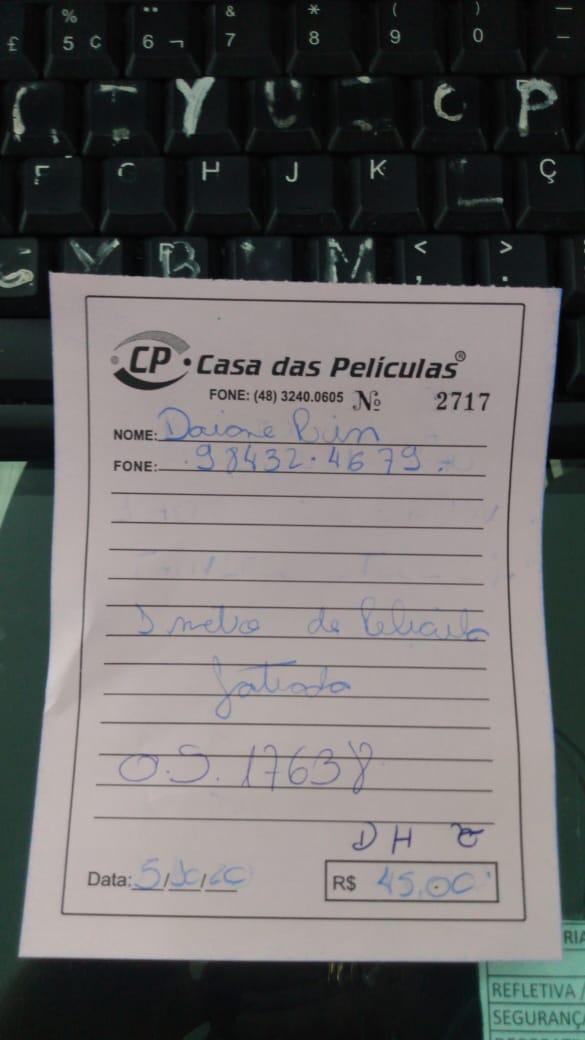 % & * ( ) —
£ 5 ¢ 6 ¬ 7 8 9 0 –
Y U C P
F G H J K Ç
V B M < ,  > .
CP Casa das Películas®
FONE: (48) 3240.0605 Nº 2717
NOME: Daiane
FONE: 98432.4679
metro de Película
Jateada
O.S. 17638
D H
Data: 5/10/20 R$ 45,00
REFLETIVA /
SEGURANÇA